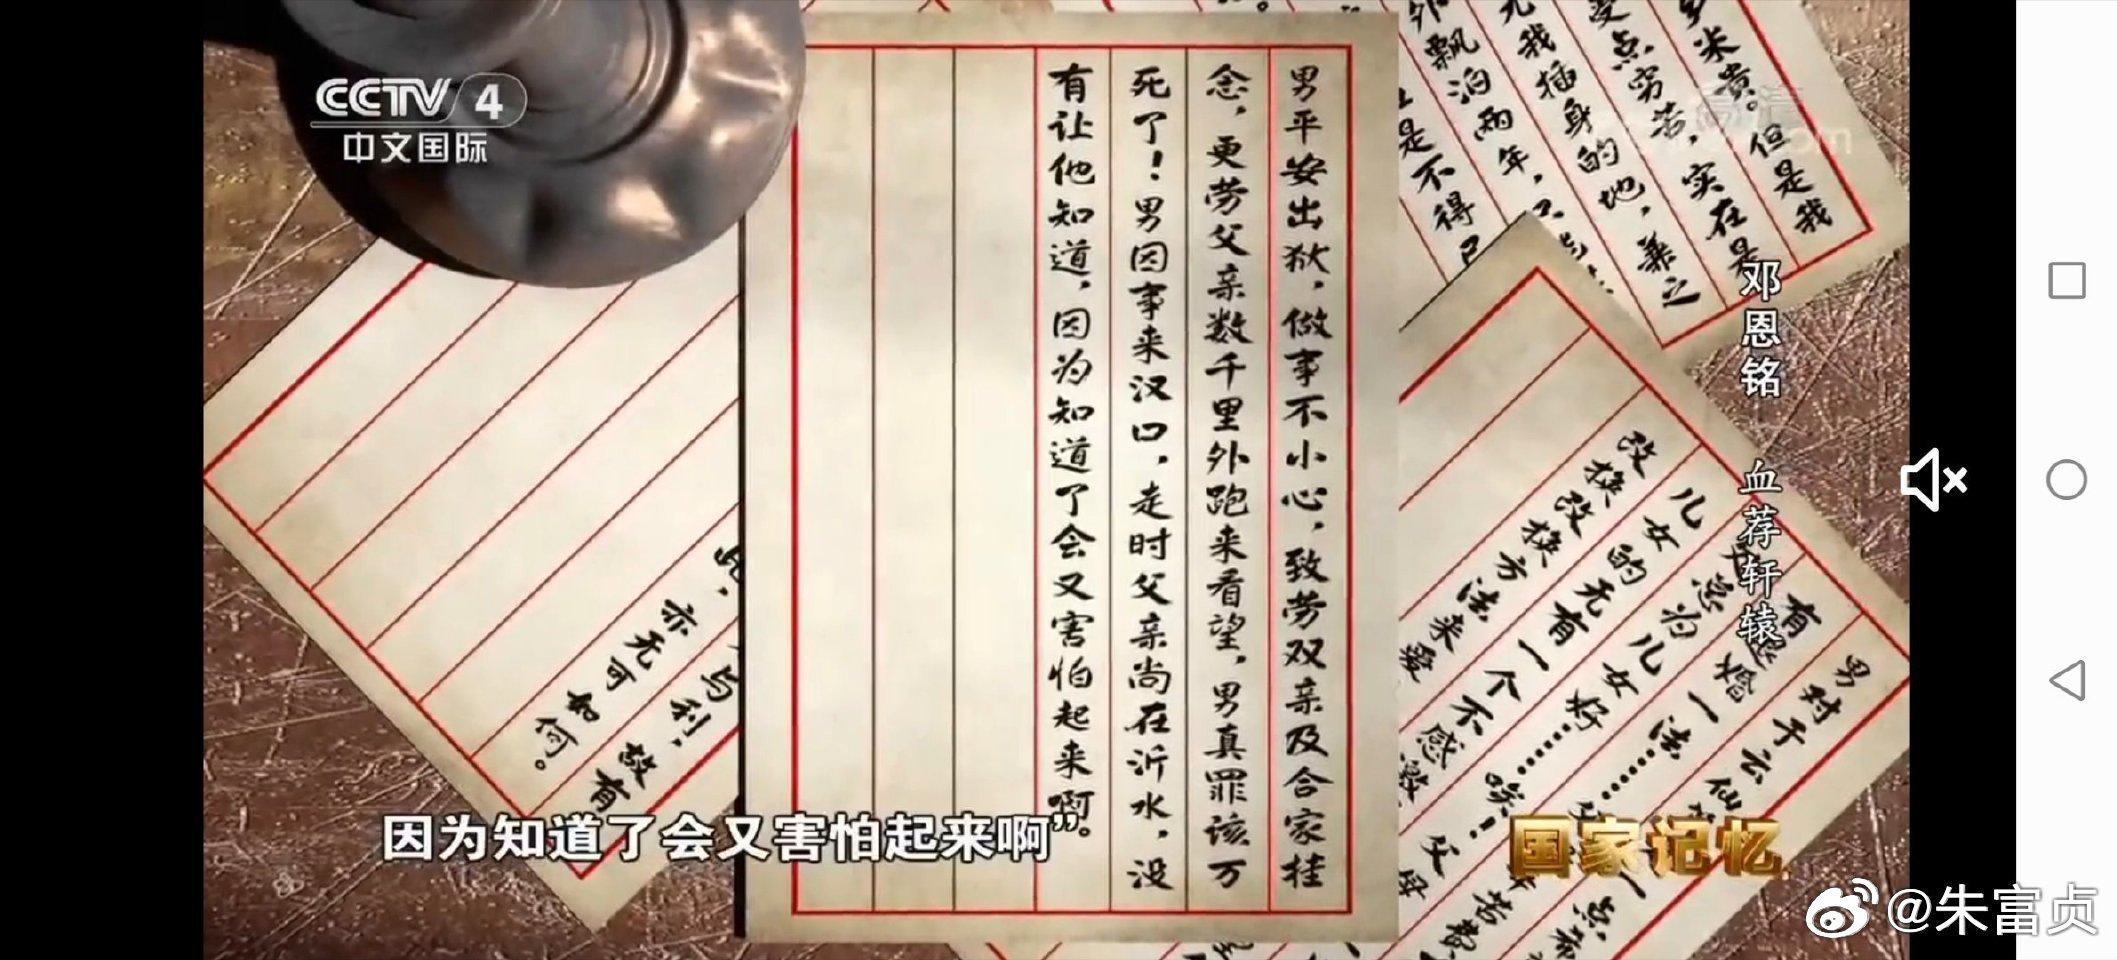 CCTV 4
中文国际
男平安出狱，做事不小心，致劳双亲及合家挂
念，更劳父亲数千里外跑来看望，男真罪该万
死了！男因事来汉口，走时父亲尚在沂水，没
有让他知道，因为知道了会又害怕起来啊。
乡米贵。但是我
受点穷苦，实在是
无我插身的地，兼之
外飘泊两年，
是不得已
高清
邓恩铭 血荐轩辕
男对于云仙
有退婚一法……
总为儿女好……唉！父母
儿女的无有一个不感激
改换改换方法来爱
点
苦费
与利，故有
此，亦无可如何。
因为知道了会又害怕起来啊”
国家记忆
@朱富贞